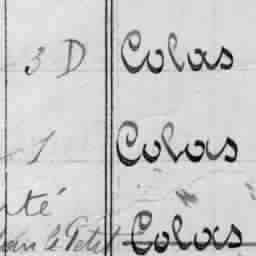 3 D Colas
1 Colas
nté
le Petit Colas